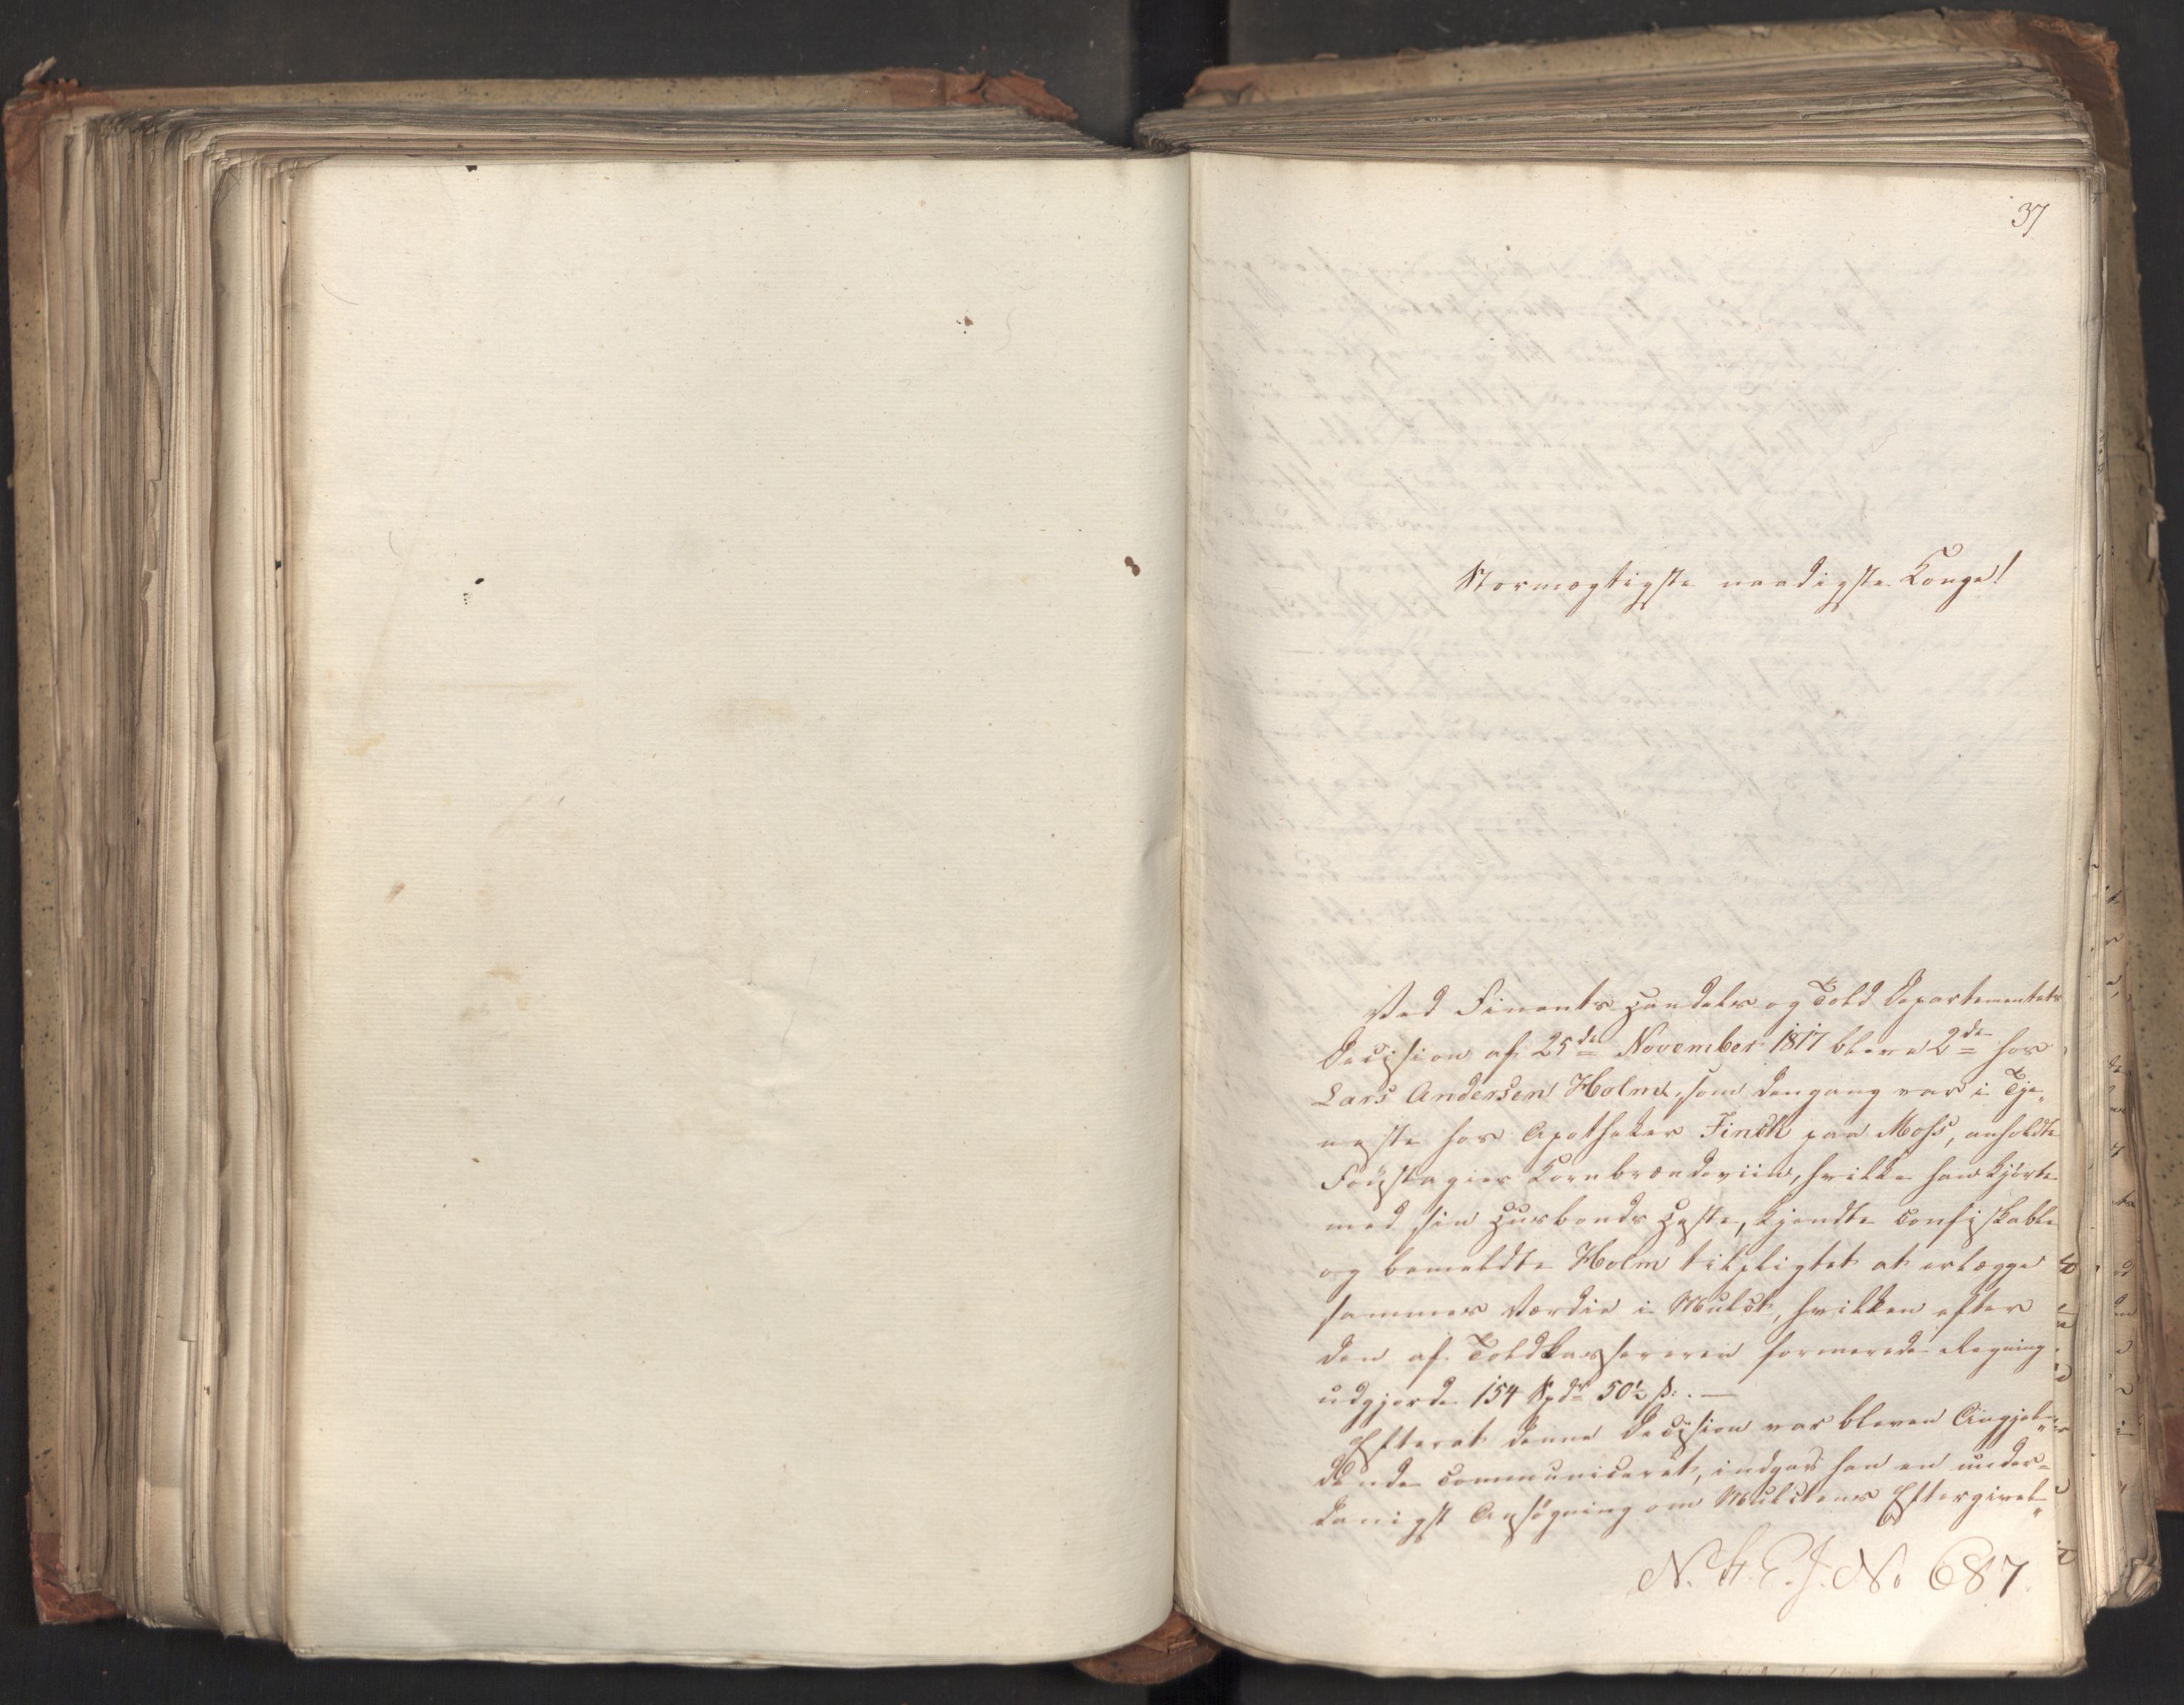 37
Stormægtigste naadigste Konge!
Ved Finants Handels og Told Departementets
Decision af 25de November 1817 bleve 2de hos
Lars Andersen Holm, som dengang var i Tje„
neste hos Apotheker Finckh paa Moss, anholdte
Foustagier Kornbrændeviin, hvilke han kjørte
med sin Husbonds Heste, kjendte confiskable
og bemeldte Holm tilpligtet at erlægge
sammes Værdie i Mulct, hvilken efter
den af Toldkassereren formerede Regning
udgjorde 154 Spdr 50½ s. —
Efterat denne Decision var bleven Angjæl„
dende communiceret, indgav han en under„
danigst Ansøgning om Mulctens Eftergivel„
N. St. E. J. No 687.